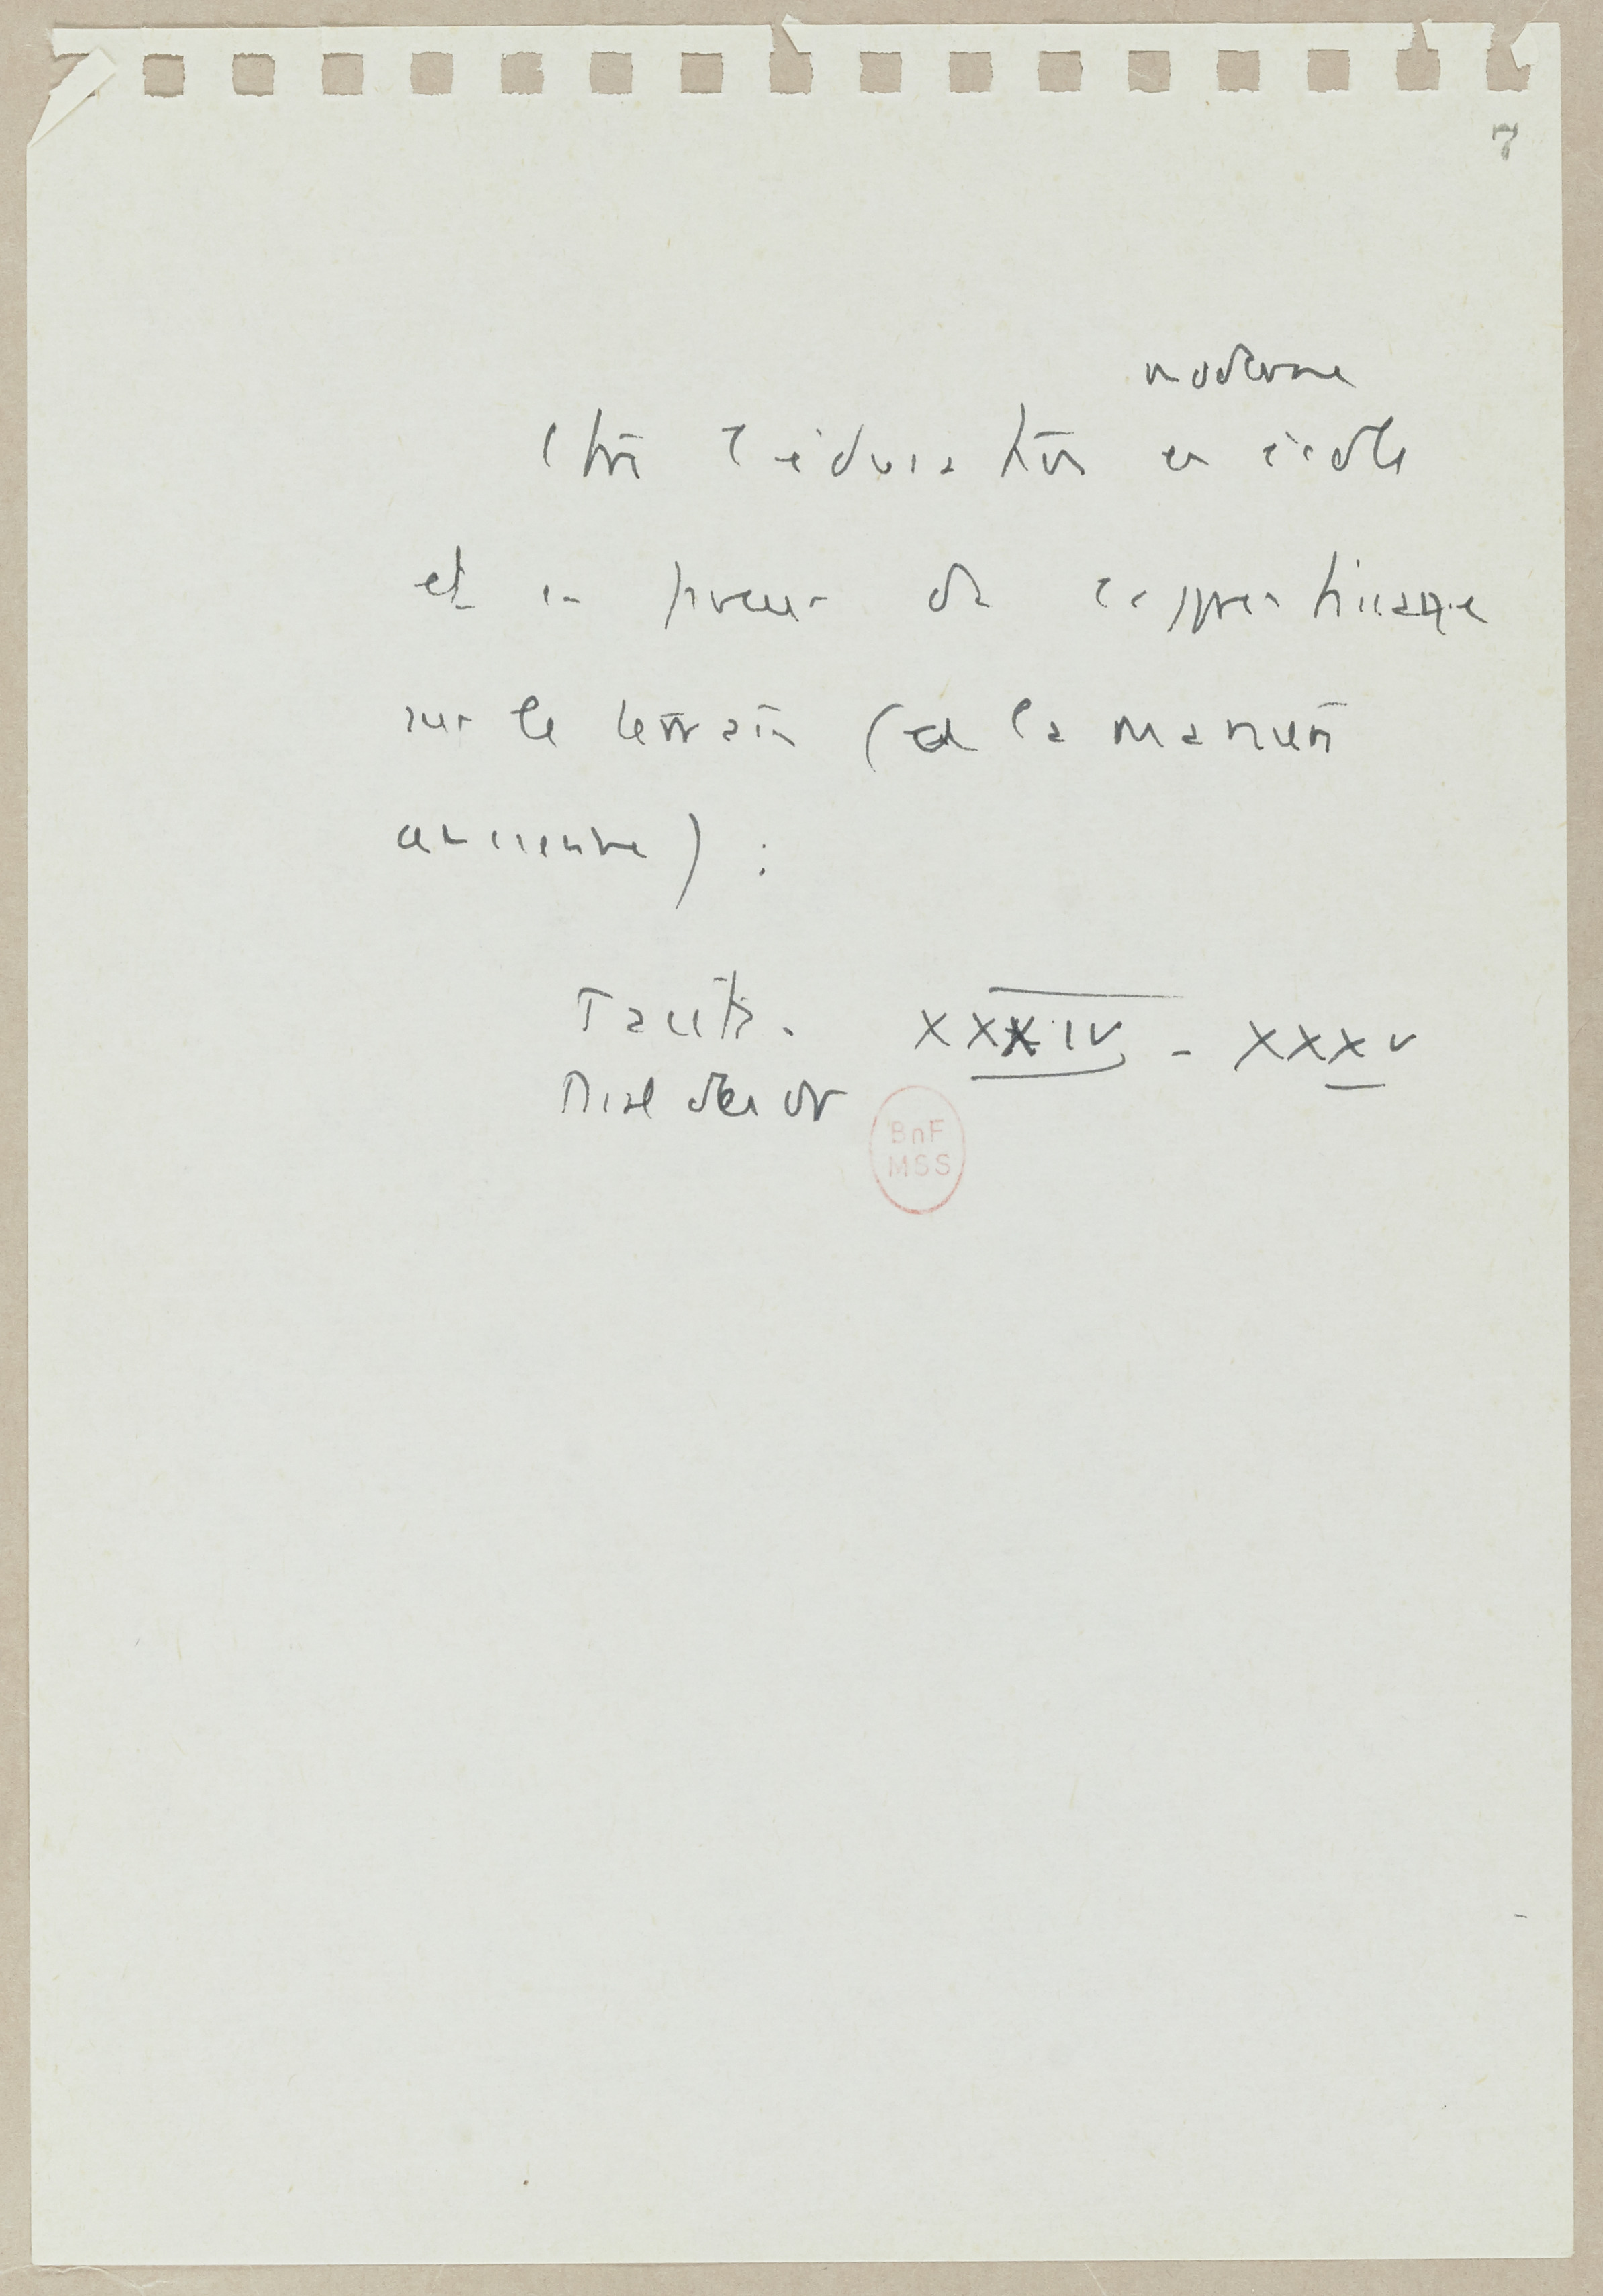 7
moderne
Ctre l'éducation en école
et en faveur de l'apprentissage
sur le terrain (à la manière
ancienne) :
Tacite. XXXIV - XXXV
Dial des or
BnF
MSS